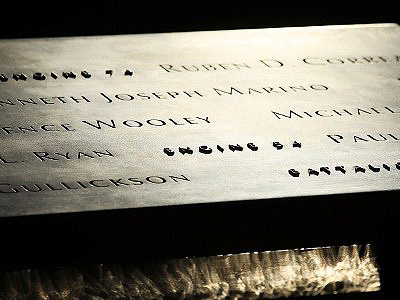 ENGINE 74 RUBEN D. CORRE
NNETH JOSEPH MARINO
ENCE WOOLEY MICHAEL
L. RYAN ENGINE 54 PAUL
GULLICKSON BATTALIO